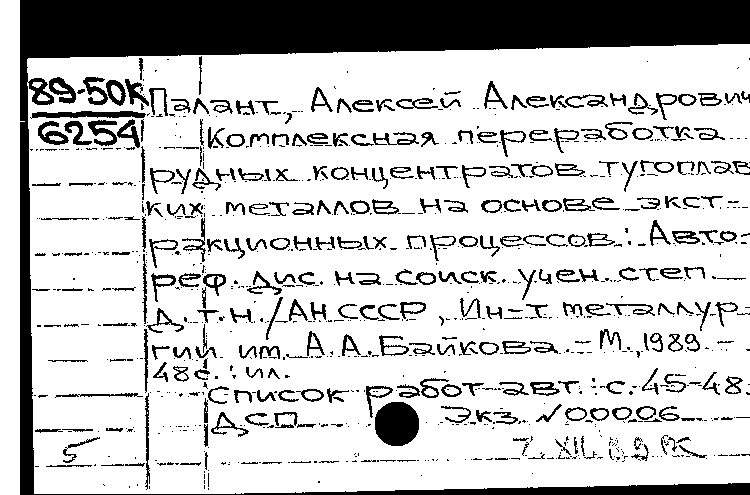 89-50К
6254
Палант, Алексей Александрович
Комплексная переработка
рудных концентратов тугоплав
ких металлов на основе экст-
ракционных процессов: Авто-
реф. дис. на соиск. учен. степ.
д.т.н./АН СССР, Ин-т металлур-
гии им. А.А.Байкова. - М., 1989. -
48с.: ил.
Список работ авт.: с.45-48.
ДСП Экз. √00006
5 7.XII.89